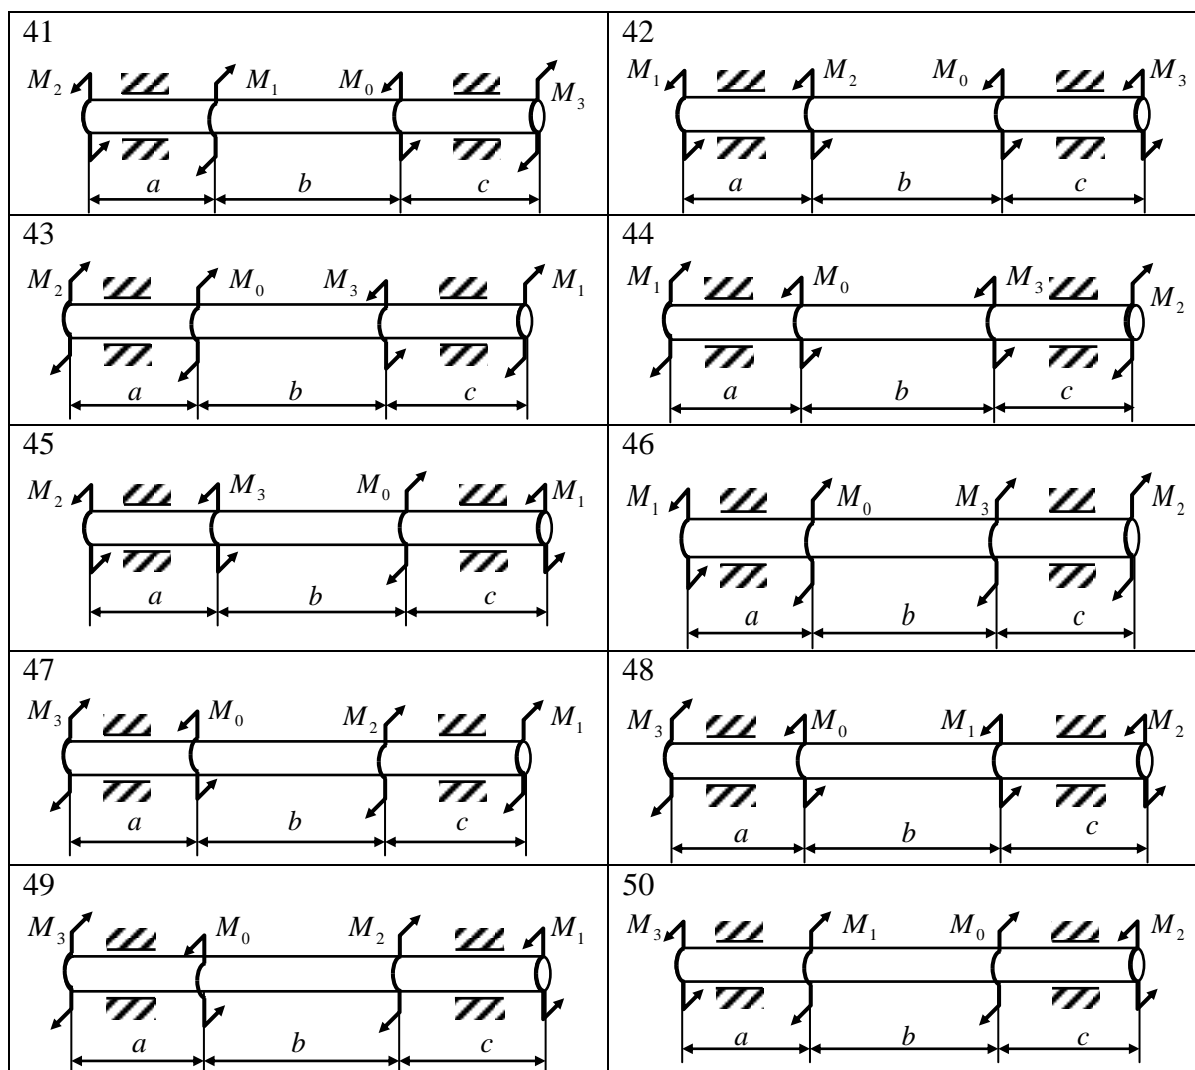 41
M₂ M₁ M₀ M₃
a b c
42
M₁ M₂ M₀ M₃
a b c
43
M₂ M₀ M₃ M₁
a b c
44
M₁ M₀ M₃ M₂
a b c
45
M₂ M₃ M₀ M₁
a b c
46
M₁ M₀ M₃ M₂
a b c
47
M₃ M₀ M₂ M₁
a b c
48
M₃ M₀ M₁ M₂
a b c
49
M₃ M₀ M₂ M₁
a b c
50
M₃ M₁ M₀ M₂
a b c